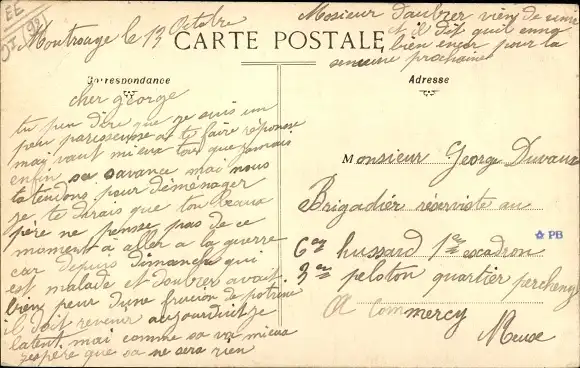 Montrouge le 13 Octobre
Monsieur Daubrer vien de venir
et il dit quil enny
bien encor pour la
semaine prochaine
CARTE POSTALE
Correspondance
Adresse
cher george
tu peu dire que je suis un
peu paresseuse a te faire réponse
mai vaut mieux tar que jamais
enfin sa savance mai nous
ta tendons pour déménager
je te dirais que ton beau
père ne pense pas de ce
moment à aller a la guerre
car depuis dimanche qui
est malade et daubrer avait
bien peur dune fluxion de potrine
il doit revenir aujourduit je
latent mai comme sa va mieux
jespère que sa ne sera rien
Monsieur George Duvaux
Brigadiér réserviste au
6em hussard 1er escadron
PB
3em peloton quartier
A Commercy
Meuse